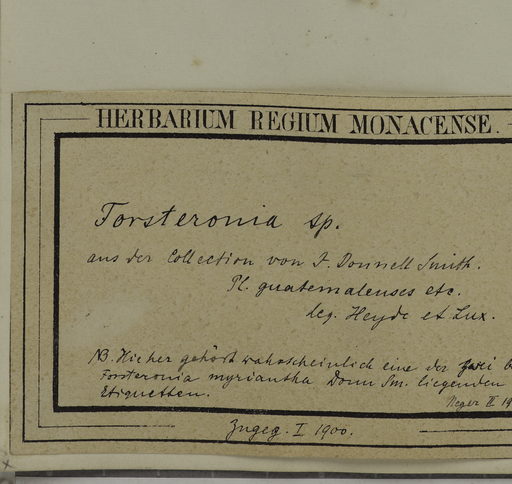 HERBARIUM REGIUM MONACENSE.
Forsteronia sp.
aus der Collection von J. Donnell Smith.
Pl. guatemalenses etc.
leg. Heyde et Lux.
NB. Hieher gehört wahrscheinlich eine der zwei
Forsteronia myriantha Donn Sm. liegenden
Etiquetten.
Neger II 19
Zugeg. I. 1900.